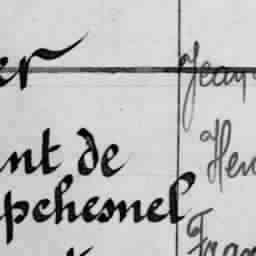 er Jean
nt de Hen
pchesnel Fran